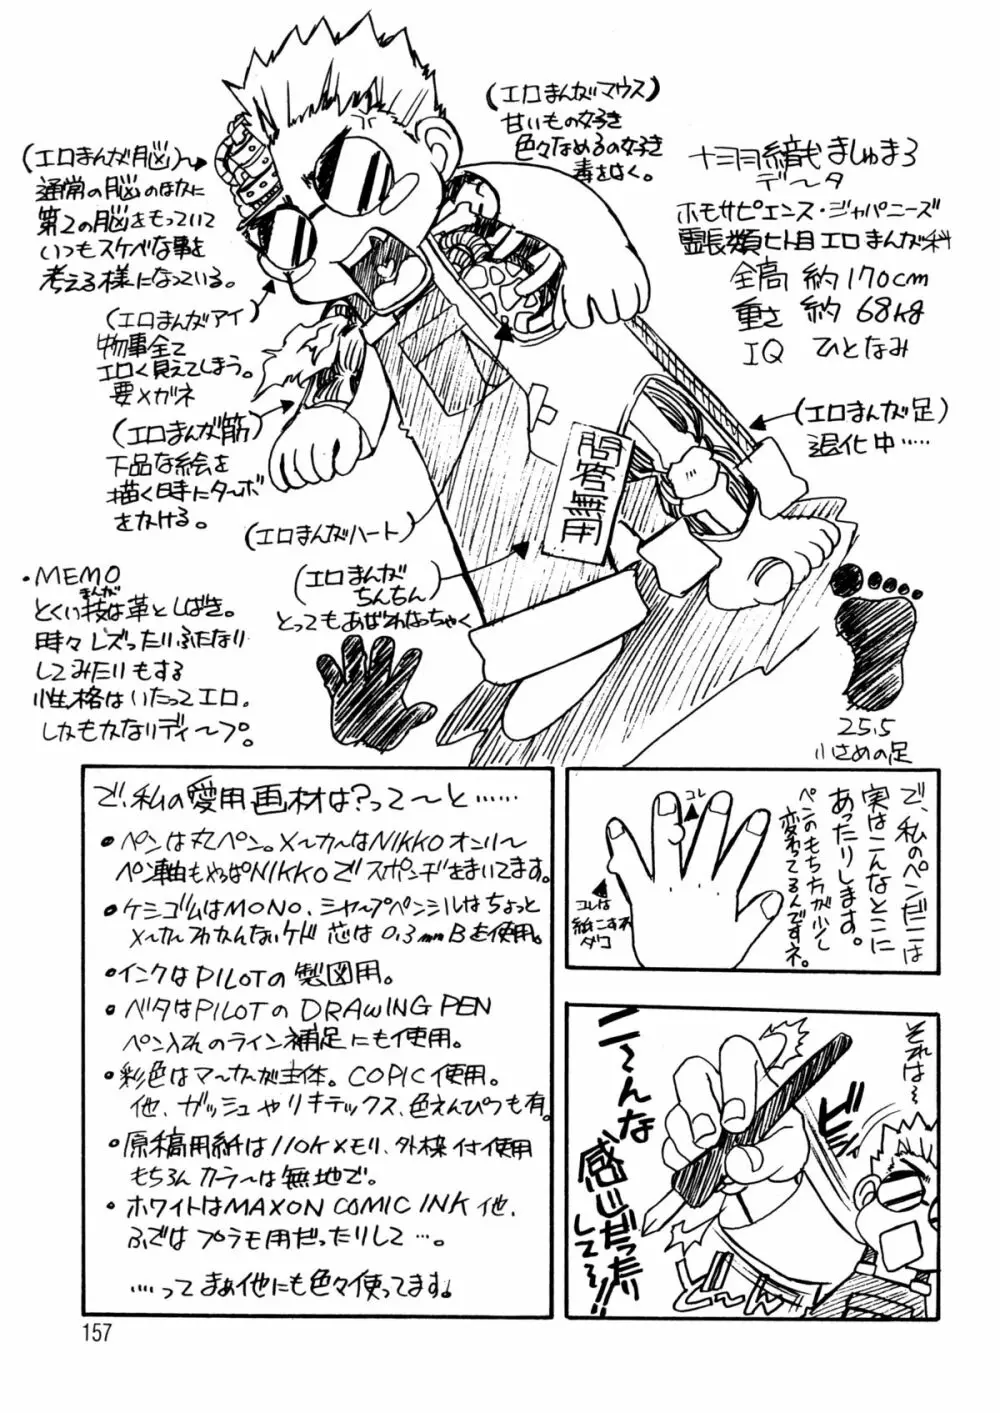 (エロまんがマウス)
甘いもの好き
色々なめるの好き
毒をはく。
(エロまんが脳)
通常の脳のほかに
第2の脳をもっていて
いつもスケベな事を
考える様になっている。
ましゅまろ
データ
ホモサピエンス・ジャパニーズ
霊長類ヒト目エロまんが科
全高 約170cm
重さ 約68kg
IQ ひとなみ
(エロまんがアイ)
物事全て
エロく見えてしまう。
要メガネ
(エロまんが筋)
下品な絵を
描く時にターボ
をかける。
(エロまんが足)
退化中……
問答無用
(エロまんがハート)
(エロまんが
ちんちん)
とってもあばれなっちゃく
・MEMO
まんが
とくい技は革としばき。
時々レズったりふたなり
してみたりもする
性格はいたってエロ。
しかもかなりディープ。
25.5
小さめの足
で、私の愛用画材は?って〜と……
・ペンは丸ペン。メーカーはNIKKOオンリー
ペン軸もやっぱNIKKOでスポンヂをまいてます。
・ケシゴムはMONO、シャープペンシルはちょっと
メーカーワカんないケド 芯は0.3mmBを使用。
・インクはPILOTの製図用。
・ベタはPILOTのDRAWING PEN
ペン入れのライン補足にも使用。
・彩色はマーカーが主体。COPIC使用。
他、ガッシュやリキテックス、色えんぴつも有。
・原稿用紙は110Kメモリ、外枠付使用
もちろんカラーは無地で。
・ホワイトはMAXON COMIC INK他、
ふではプラモ用だったりして…。
……ってまぁ他にも色々使ってます。
で、私のペンだこは
実はこんなとこに
あったりします。
ペンのもち方が少し
変わってるんですネ。
コレ
コレは
紙こすれ
ダコ
それは〜
ビシ
こ〜んな
感じだったり
してる!!
157